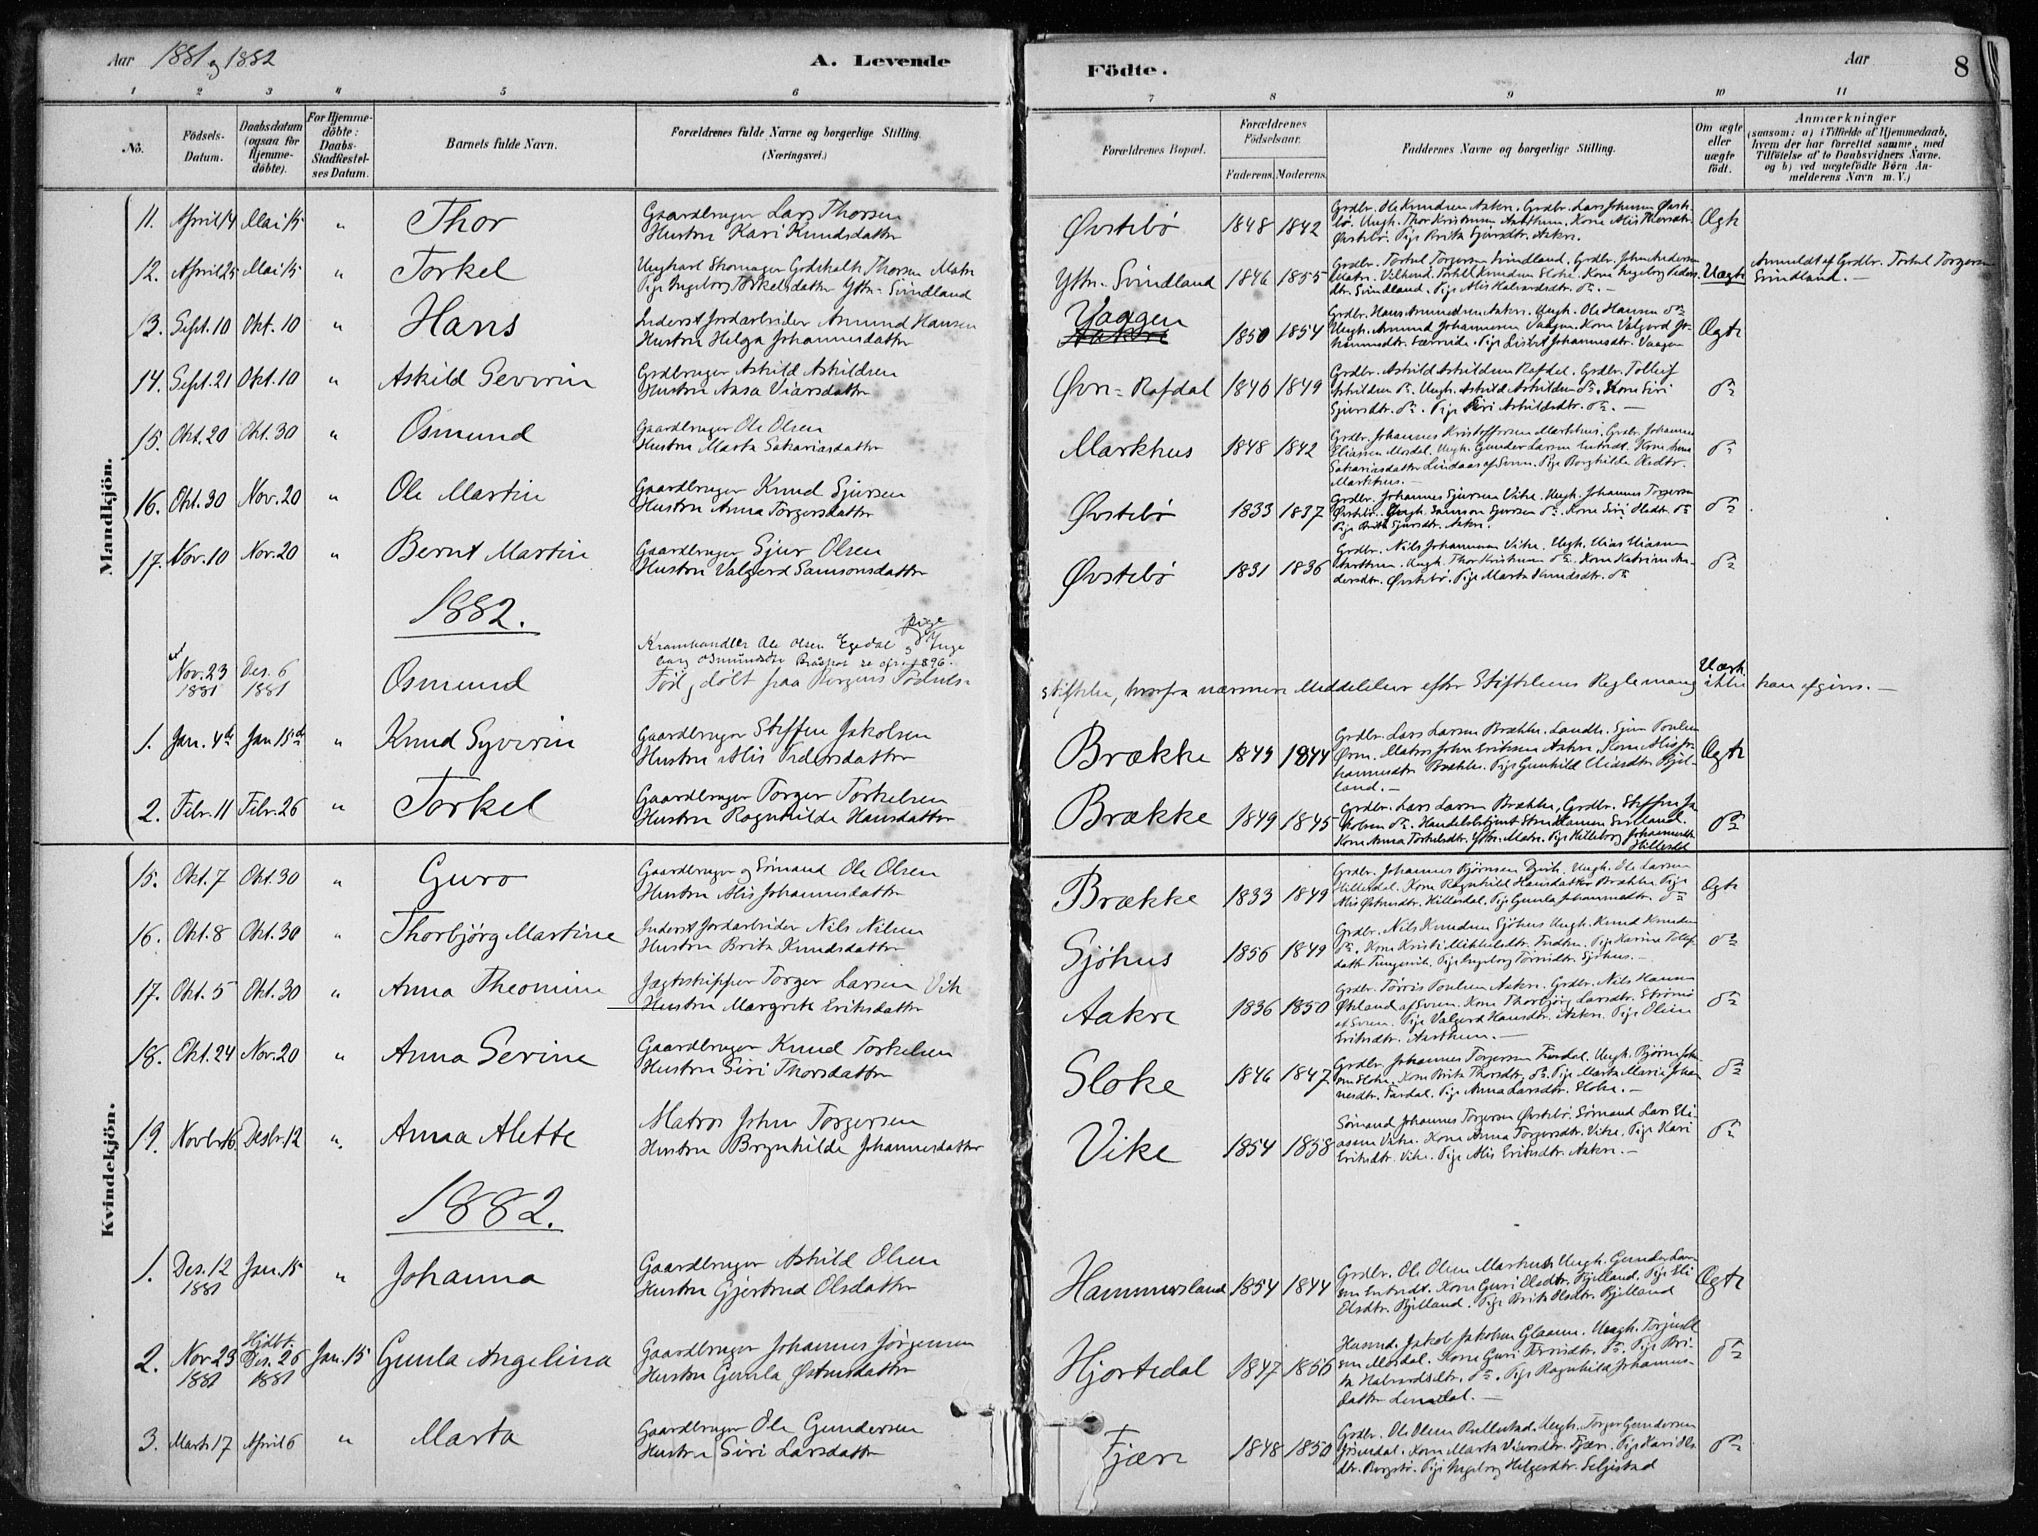 Aar 1881 og 1882
A. Levende
Födte.
Aar
8
1 2 3 4 5 6 7 8 9 10 11
No.
Födsels-Datum.
Daabsdatum (ogsaa for Hjemme-döbte).
For Hjemme-döbte: Daabs-Stadfæstel-ses Datum.
Barnets fulde Navn.
Forældrenes fulde Navne og borgerlige Stilling. (Næringsvei.)
Forældrenes Bopæl.
Forældrenes Födselsaar.
Faderens. Moderens.
Faddernes Navne og borgerlige Stilling.
Om ægte eller uægte födt.
Anmærkninger
(saasom: a) i Tilfælde af Hjemmedaab,
hvem der har forrettet samme, med
Tilföielse af to Daabsvidners Navne.
og b) ved uægtefödte Börn An-
melderens Navn m. V.)
Mandkjön.
11. April 14 Mai 15 " Thor
Gaardbruger Lars Thorsen
Hustru Kari Knudsdatter
Øvstebö 1848 1842
Grdbr. Ole Knudsen Aakre. Grdbr. Lars Johnsen Øvste-
bö. Ungk. Thor Kristensen Aarthun. Kone Alis Thorsdtr.
Øvstebö. Pige Brita Sjursdtr. Aakre.
Ægte
12. April 25 Mai 15 " Torkel
Ungkarl Skomager Godskalk Thorsen Matre
Pige Ingeborg Torkelsdatter Yttre-Svindland
Yttre-Svindland 1846 1855
Grdbr. Torkel Torgersen Svindland, Grdbr. John Andersen
dtr. Svindland. Pige Alis Halvardsdtr. do. —
Uægte
Anmeldt af Grdbr. Torkel Torgersen
Svindland. —
13. Sept. 10 Okt. 10 " Hans
Inderst Jordarbeider Amund Hansen
Hustru Helga Johannesdatter
Vaagen
1850 1854
Grdbr. Hans Amundsen Aakre. Ungk. Ole Hansen do
Ungk. Amund Johannesen Vaagen. Kone Valgerd Jo-
Ægte
14. Sept. 21 Okt. 10 " Askild Severin
Grdbruger Askild Askildsen
Hustru Aasa Viarsdatter
Øvre-Rafdal 1840 1849
Grdbr. Askild Askildsen Rafdal. Grdbr. Tolleif
Askildsen do. Ungk. Askild Askildsen do. Kone Siri
Sjursdtr. do. Pige Siri Askildsdtr. do. —
do
15. Okt. 20 Okt. 30 " Osmund
Gaardbruger Ole Olsen
Hustru Marta Sakariasdatter
Markhus 1848 1842
Grdbr. Johannes Kristoffersen Markhus. Grdbr. Johannes
Eliassen Mosdal. Ungk. Gunder Larsen Entredt. Kone Anna
Sakariasdatter Lindaas af Sveen. Pige Borghilde Olsdtr.
Markhus. —
do
16. Okt. 30 Nov. 20 " Ole Martin
Gaardbruger Knud Sjursen
Hustru Anna Torgersdatter
Øvstebö 1833 1837
Grdbr. Johannes Sjursen Vike. Ungk. Johannes Torgersen
Øvstebö. Ungk. Samson Sjursen do. Kone Siri Olsdtr. do
Pige Brita Sjursdtr. Aakre.
do
17. Nov. 10 Nov. 20 " Bernt Martin
Gaardbruger Sjur Olsen
Hustru Valgerd Samsonsdatter
Øvstebö 1831 1836
Grdbr. Nils Johannesen Vike. Ungk. Elias Eliassen
Aarthun. Ungk. Thor Kristensen do. Kone Katrine An-
dersdtr. Øvstebö. Pige Marta Knudsdtr. do
do
1882.
Nov. 23 1881 Des. 6 1881 Osmund
Kramhandler Ole Olsen Egedal og Pige Inge
Född og döbt paa Bergens Födsels-
stiftelse, hvorfra nærmere Meddelelser efter Stiftelsens Reglement ikke kan afgives. —
Uægte
1. Jan. 4de Jan 15de " Knud Syverin
Gaardbruger Steffen Jakobsen
Hustru Alis Pedersdatter
Brække 1849 1844
Grdbr. Lars Larsen Brække. Landh. Sjur Poulsen
Øvre. Matros John Eriksen Aakre. Kone Alis Jo-
hannesdtr. Brække. Pige Gunhild Eliasdtr. Bjel-
land. —
Ægte
2. Febr. 11 Febr. 26 " Torkel
Gaardbruger Torger Torkelsen
Hustru Ragnhilde Hansdatter
Brække 1849 1845
Grdbr. Lars Larsen Brække, Grdbr. Steffen Ja-
kobsen do.
Kone Anna Torkelsdtr. Yttre-Matre. Pige Hilleborg Johannesdtr.
Hillesdal
do
Kvindekjön.
15. Okt. 7 Okt. 30 " Guro
Gaardbruger og Sömand Ole Olsen
Hustru Alis Johannesdatter
Brække 1833 1849
Hillesdal. Kone Ragnhild Hansdatter Brække. Pige
Alis Østensdtr. Hillesdal. Pige Gunla Johannesdtr. do
Ægte
16. Okt. 8 Okt. 30 " Thorbjörg Martine
Inderst Jordarbeider Nils Nilsen
Hustru Brita Knudsdatter
Sjöhus 1856 1849
Grdbr. Nils Knudsen Sjöhus. Ungk. Knud Knudsen
do
17. Okt. 5 Okt. 30 " Anna Theomine
Jagtskipper Torger Larsen Vik
Hustru Margrete Eriksdatter
Aakre 1836 1850
Grdbr. Törris Poulsen Aakre. Grdbr. Nils Hansen
Økland af Sveen. Kone Thorbjörg Larsdtr. Strömö
af Sveen. Pige Valgerd Hansdtr. Aakre. Pige Oline
Eriksdtr. Aarthun. —
do
18. Okt. 24 Nov. 20 " Anna Serine
Gaardbruger Knud Torkelsen
Hustru Siri Thorsdatter
Sloke 1846 1847
Grdbr. Johannes Torgersen Fardal. Ungk. Björn John-
sen Sloke. Kone Brita Thorsdtr. do. Pige Marta Marie Johan-
nesdtr. Fardal. Pige Anna Larsdtr. Sloke. —
do
19. Novbr. 16 Desbr. 12 " Anna Alette
Matros John Torgersen
Hustru Bergnhilde Johannesdatter
Vike 1854 1858
Sömand Johannes Torgersen Øvstebö. Sömand Lars Eli-
assen Vike. Kone Anna Torgersdtr. Vike. Pige Kari
Eriksdtr. Vike. Pige Alis Eriksdtr. Aakre. —
do
1882.
1. Des. 12 1881 Jan. 15 " Johanna
Gaardbruger Askild Olsen
Hustru Gjertrud Olsdatter
Hammersland 1854 1844
Grdbr. Ole Olsen Markhus. Ungk. Gunder Lar-
sen Entredt. Kone Guri Olsdtr. Bjelland. Pige Eli
Olsdtr. Bjelland. Pige Brita Olsdtr. Bjelland
Ægte
2. Nov 23 1881 Hjdbt. Des. 26 1881 Jan. 15 Gunla Angelina
Gaardbruger Johannes Jörgensen
Hustru Gunla Østensdatter
Hjortedal 1847 1856
Husmd. Jakob Jakobsen Glaamen. Ungk. Torjuel
sen Mosdal. Kone Guri
ta Halvardsdtr. do. Pige Ragnhild Johannes-
datter
do
3. Marts 17 April 6 " Marta
Gaardbruger Ole Gundersen
Hustru Siri Larsdatter
Fjære 1848 1850
Grdbr. Ole Olsen Rullestad. Ungk. Torger Gundersen
Grönsdal. Kone Marta Viarsdtr. Fjære. Pige Kari Ols-
dtr. Bergstö. Pige Ingeborg Helgesdtr. Seljestad
do